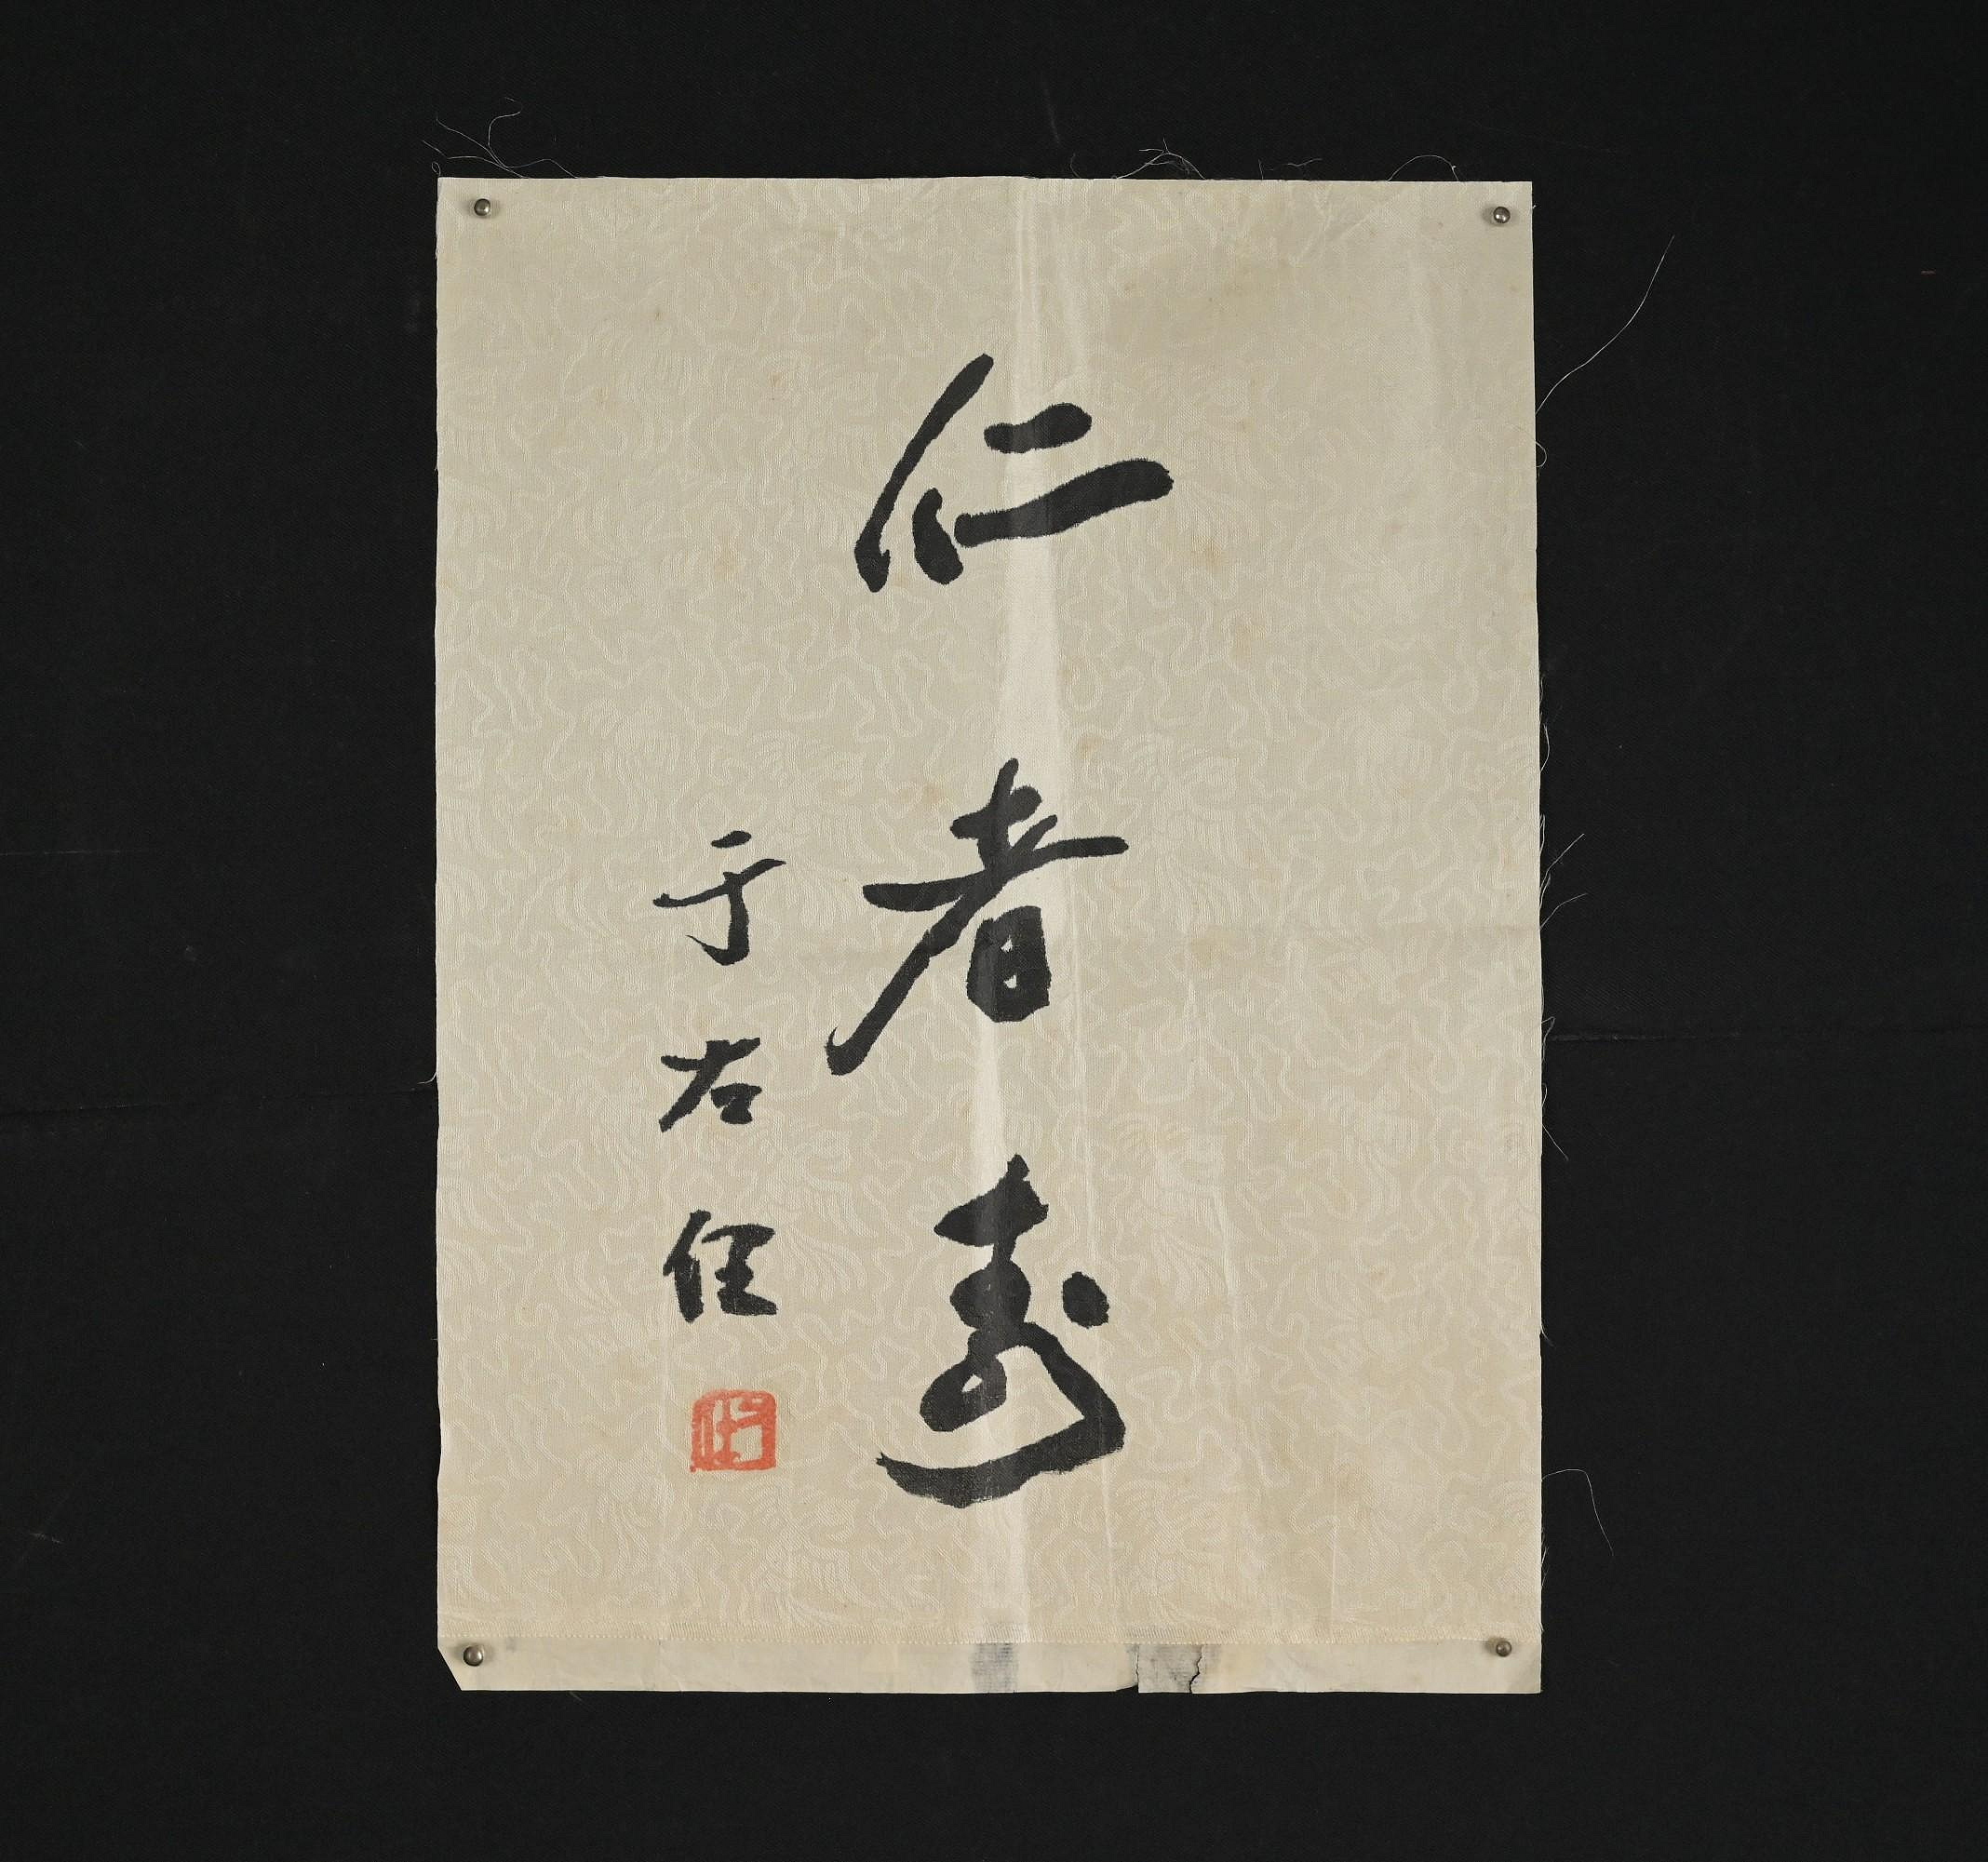 仁者寿
于右任